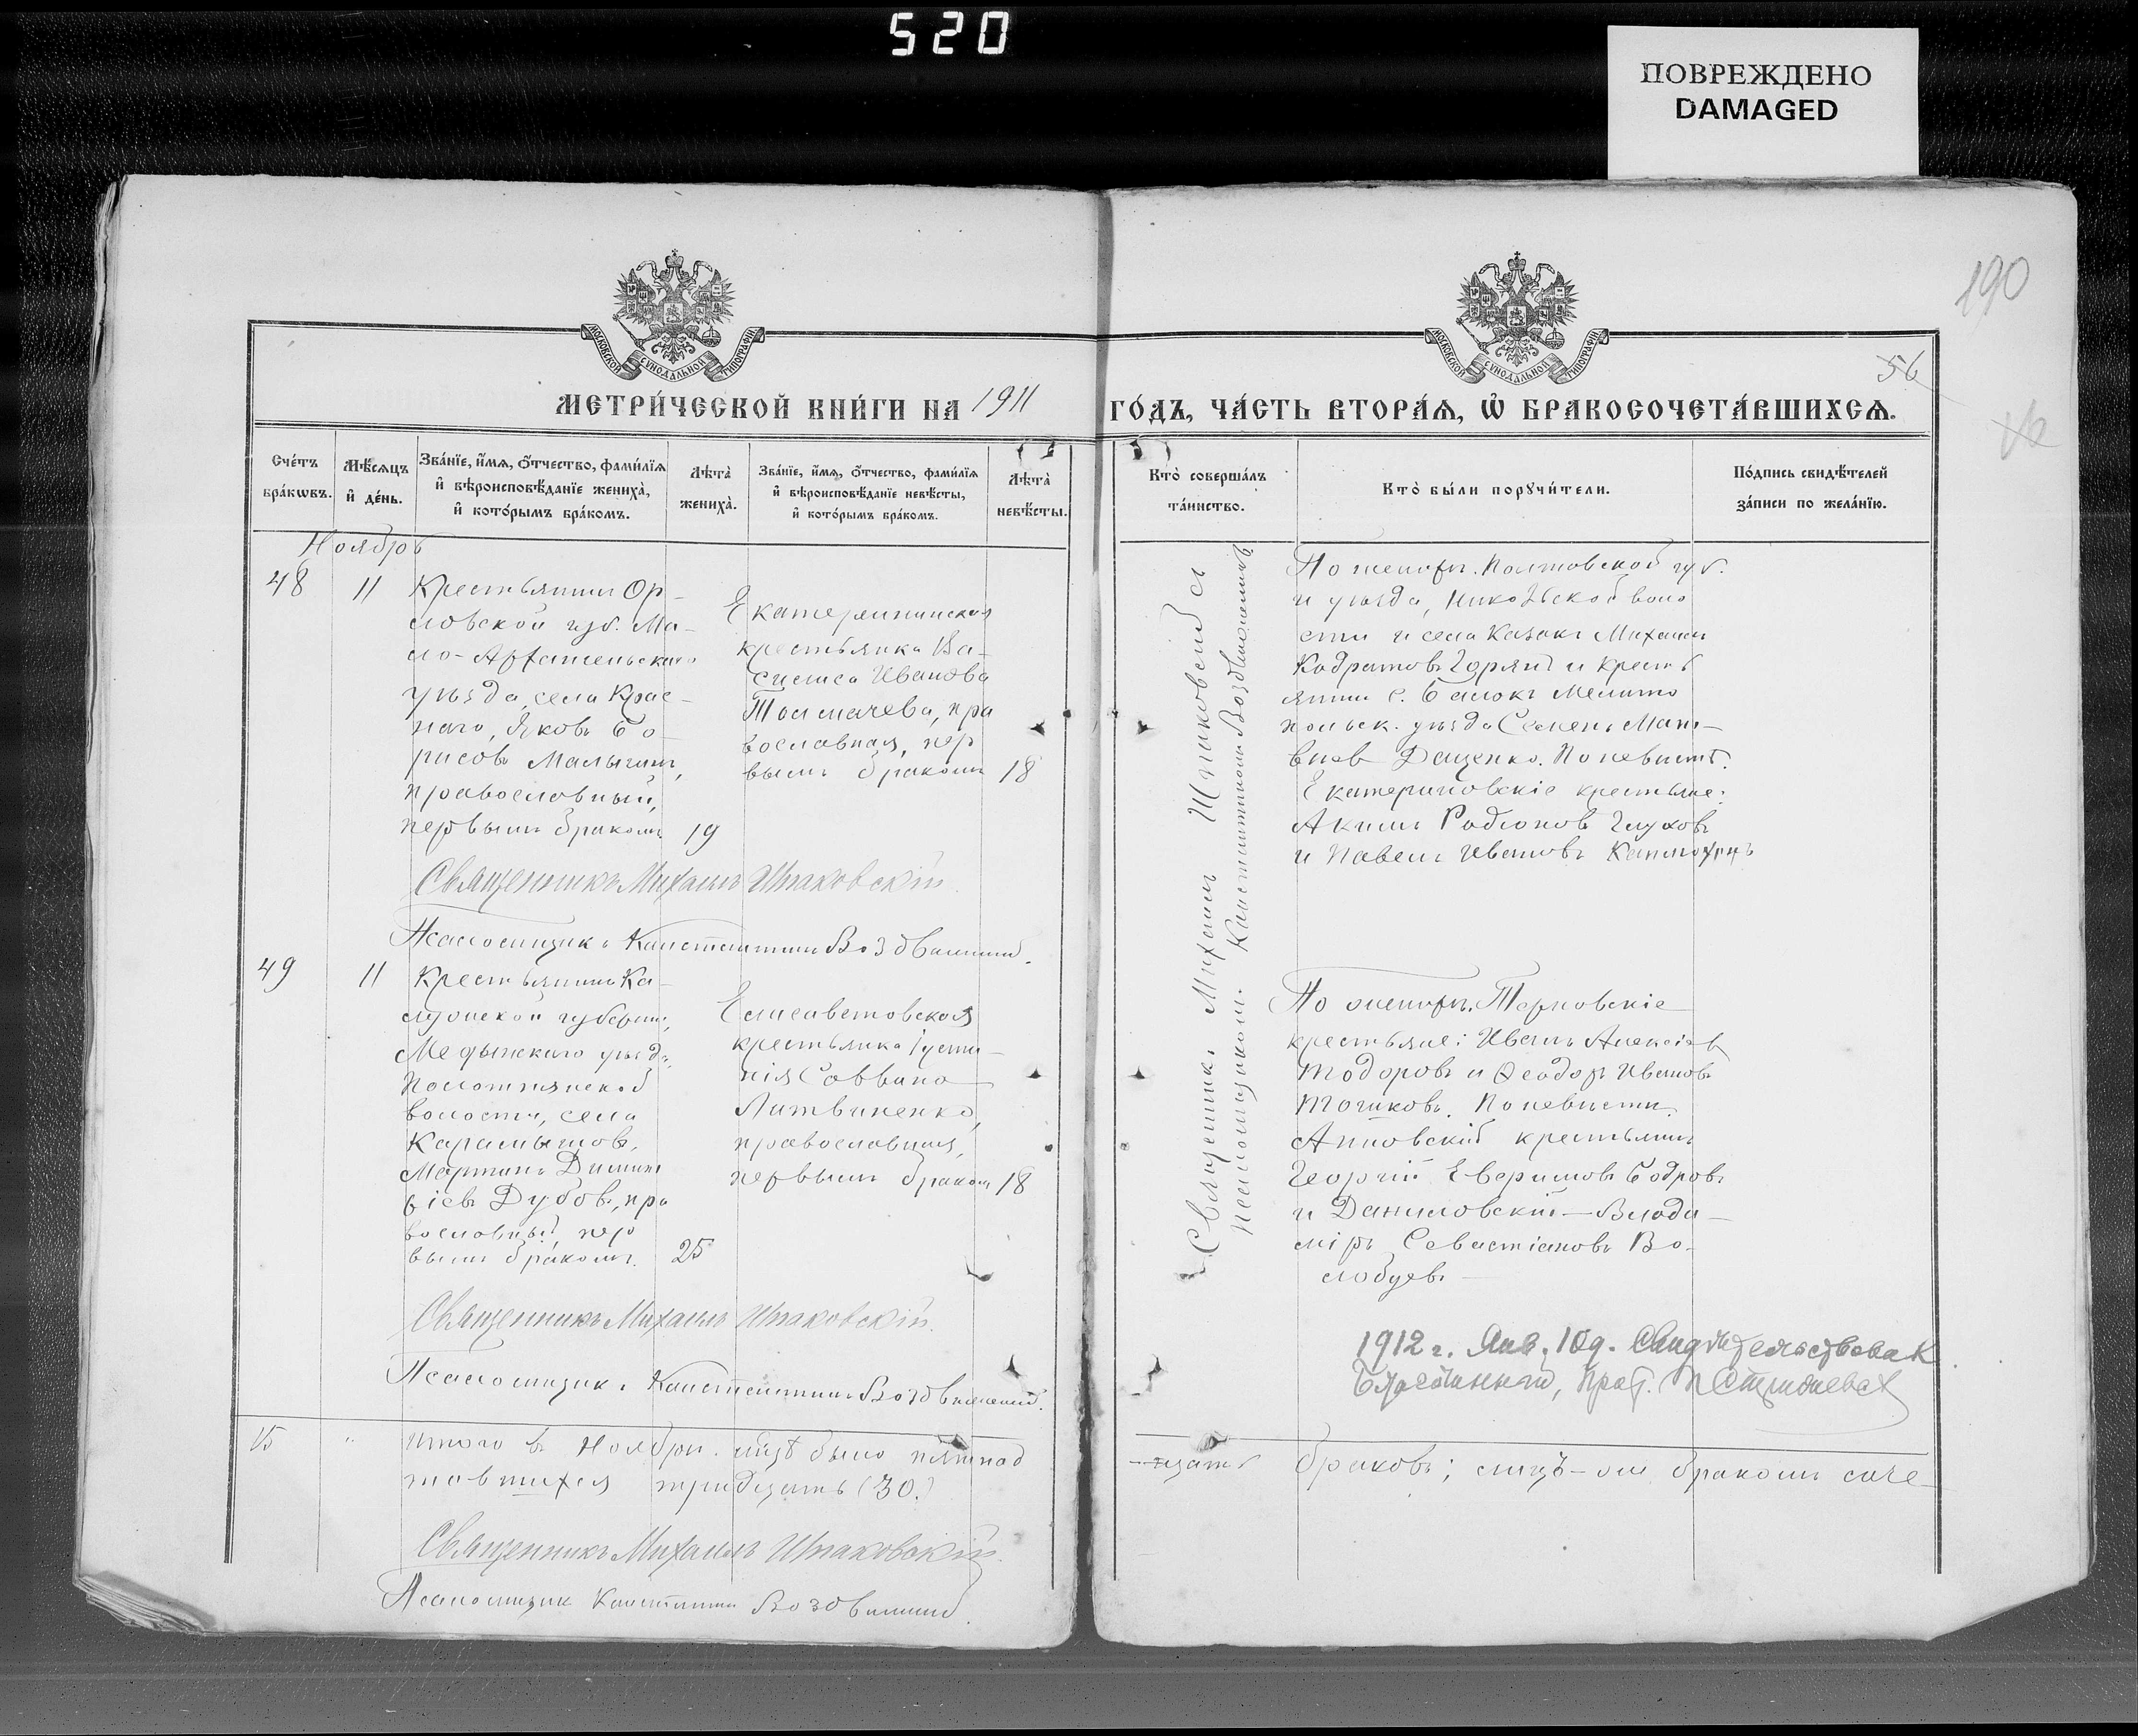 520
ПОВРЕЖДЕНО
DAMAGED
190
56
МОСКОВСКОЙ СѴНОДАЛЬНОЙ ТИПОГРАФІИ
МОСКОВСКОЙ СѴНОДАЛЬНОЙ ТИПОГРАФІИ
МЕТРИ́ЧЕСКОЙ КНИ́ГИ НА 1911 ГО́ДЪ, ЧА́СТЬ ВТОРА́Я, Ѡ҆ БРАКОСОЧЕТА́ВШИХСЯ.
Сче́тъ бра́кѡвъ.
Мѣ́сяцъ и҆ де́нь.
Зва́нїе, и҆́мя, ѻ҆́тчество, фами́лїя
и҆ вѣроисповѣ́данїе жениха̀,
и҆ кото́рымъ бра́комъ.
Лѣта̀ жениха̀.
Зва́нїе, и҆́мя, ѻ҆́тчество, фами́лїя
и҆ вѣроисповѣ́данїе невѣ́сты,
и҆ кото́рымъ бра́комъ.
Лѣта̀ невѣ́сты.
Кто̀ соверша́лъ
та́инство.
Кто̀ бы́ли порꙋчи́тели.
По́дпись свидѣ́телей
за́писи по жела́нїю.
Ноябрь
48
11
Крестьянинъ Ор-
ловской губ. Ма-
ло-Архангельскаго
уѣзда, села Крас-
наго, Яковъ Бо-
рисовъ Малыгинъ,
православный,
первымъ бракомъ
19
Екатерининская
крестьянка Ва-
силиса Иванова
Толмачева, пра
вославная, пер
вымъ бракомъ
18
Священникъ Михаилъ Шпаковскій съ
псаломщикомъ Константиномъ Воздвиженскимъ
По женихѣ: Полтовской губ.
и уѣзда, Никольской воло
сти и села Казакъ Михаилъ
Кодратовъ Горянъ и кресть
янинъ с. Балокъ Мелито
польск. уѣзда Семенъ Мат-
вѣев Даценко. По невѣстѣ:
Екатериновскіе крестьяне:
Акимъ Родіоновъ Глуховъ
и Павелъ Ивановъ
Священникъ Михаилъ Шпаковскій.
Псаломщикъ Константинъ Воздвиженскій.
49
11
Крестьянинъ Ка-
лужской губерніи,
Медынскаго уѣзда
Полотнянской
волости, села
Карамышова,
Мартинъ Димит
ріевъ Дубовъ, пра
вославный, пер
вымъ бракомъ.
25
Елисаветовская
крестьянка Іусти-
нія Саввина
Литвиненко,
православная,
первымъ бракомъ
18
По женихѣ: Терновскіе
крестьяне: Иванъ Алексіев
Тодоровъ и Ѳеодоръ Ивановъ
Точиковъ. По невѣстѣ:
Анновскій крестьянинъ
Георгій Бодровъ
и Даниловскій - Влади-
міръ Севастіановъ Во-
лобуевъ
Священникъ Михаилъ Шпаковскій.
Псаломщикъ Константинъ Воздвиженскій.
1912 г. Янв. 10 д. Свидѣтельствовал
Благочинный, Прот.
15
Итого в Ноябрѣ м-цѣ было пятнад
-цать браковъ; лицъ-же бракомъ соче
тавшихся тридцать (30.)
Священникъ Михаилъ Шпаковскій.
Псаломщик Константинъ Воздвиженскій.